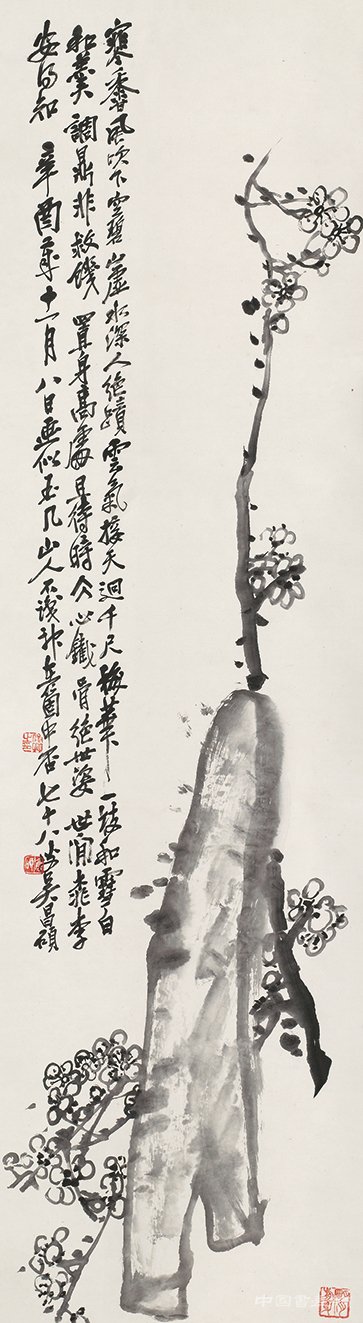 寒香風吹下空碧山虛水深人絕蹟雲氣接天迥千尺梅華一枝和雪白
和羹調鼎非救饑置身高處且待時冰心鐵骨絕世姿世間桃李
安得知 辛酉年十一月八日畫似玉几山人不識神在箇中否七十八叟吳昌碩